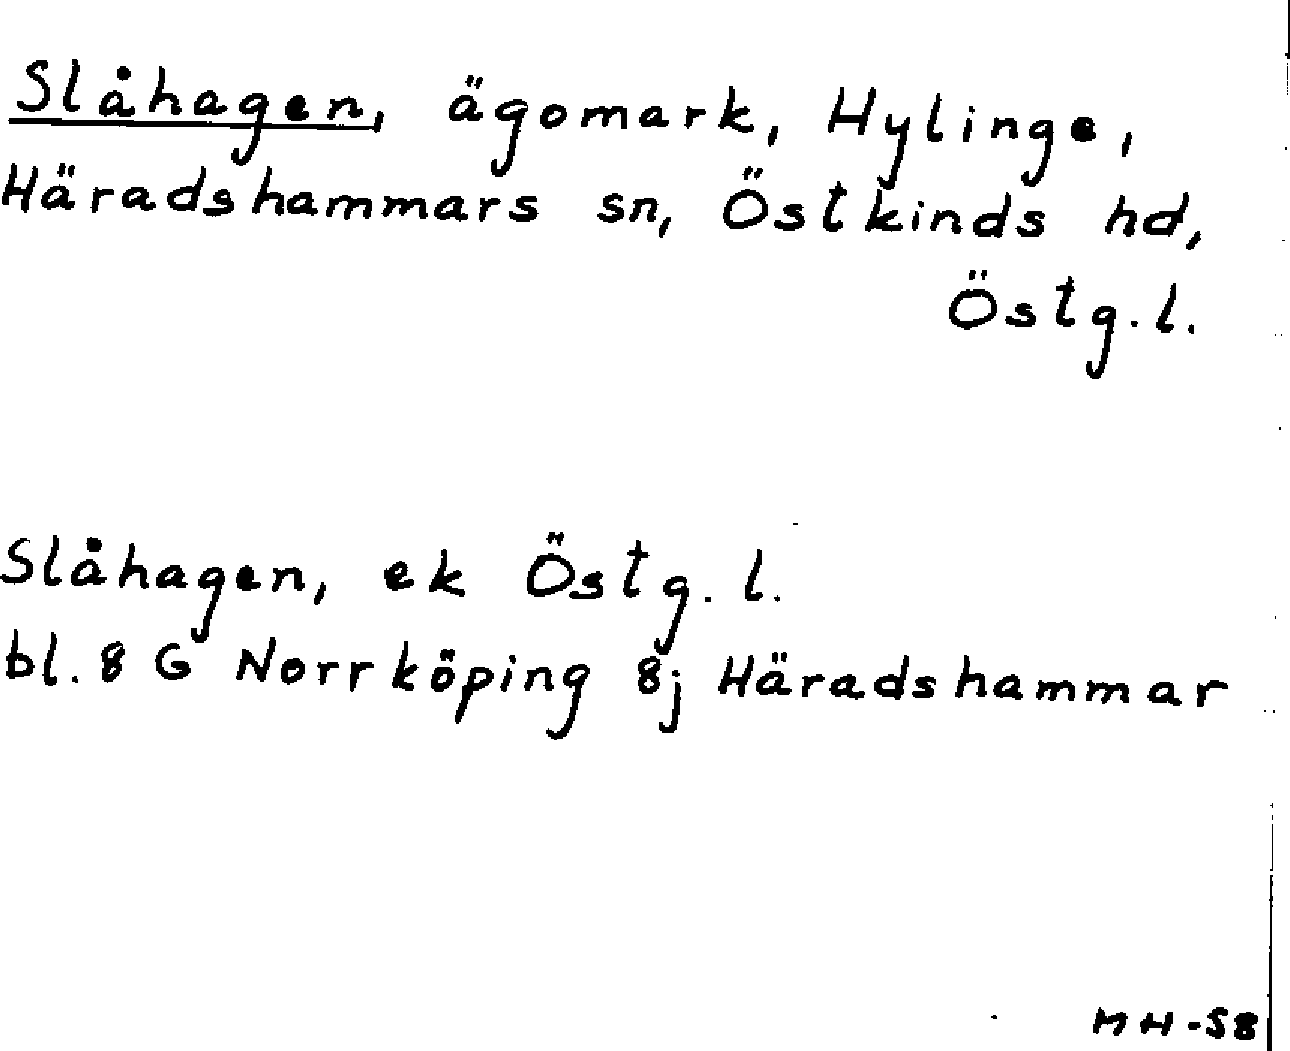 Slåhagen, ägomark, Hylinge,
Häradshammars sn, Östkinds hd,
Östg.l.
Slåhagen, ek Östg.l.
bl. 8 G Norrköping 8j Häradshammar
MH-58